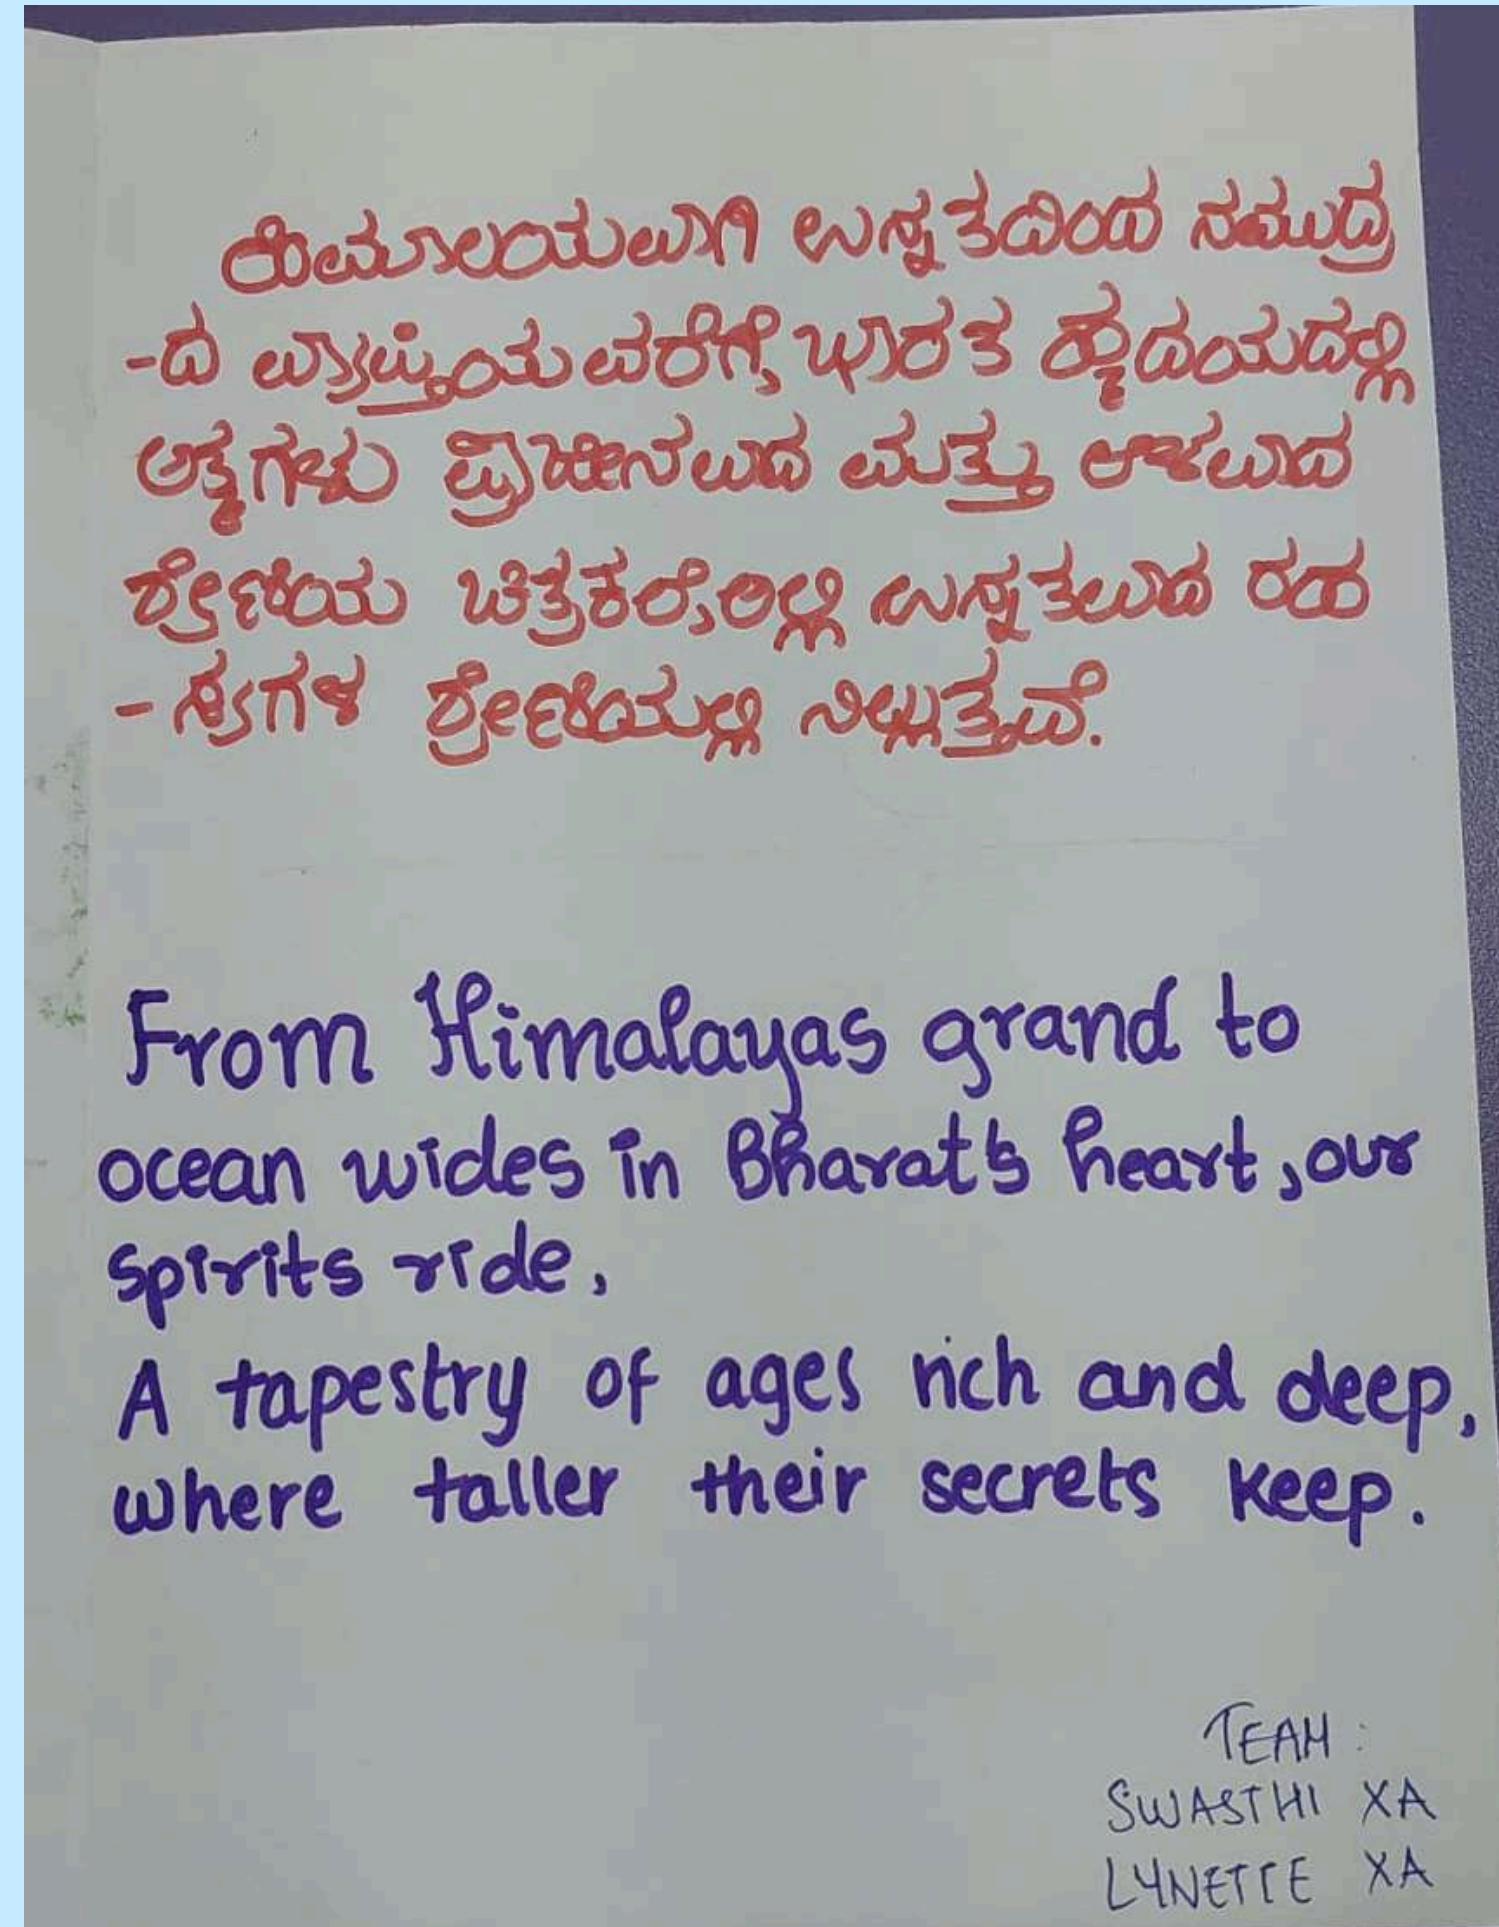 ಹಿಮಾಲಯವಾಗಿ ಉನ್ನತದಿಂದ ಸಮುದ್ರ
-ದ ವ್ಯಾಪ್ತಿಯವರೆಗೆ, ಭಾರತ ಹೃದಯದಲ್ಲಿ
ಆತ್ಮಗಳು ಪ್ರಾಚೀನವಾದ ಮತ್ತು ಆಳವಾದ
ಶ್ರೇಣಿಯ ಉನ್ನತವಾದ ರಹ
-ಸ್ಯಗಳ ಶ್ರೇಣಿಯಲ್ಲಿ ನಿಲ್ಲುತ್ತವೆ.
From Himalayas grand to
ocean wides in Bharat's heart, our
spirits ride,
A tapestry of ages rich and deep,
where taller their secrets keep.
TEAM :
SWASTHI XA
LYNETTE XA